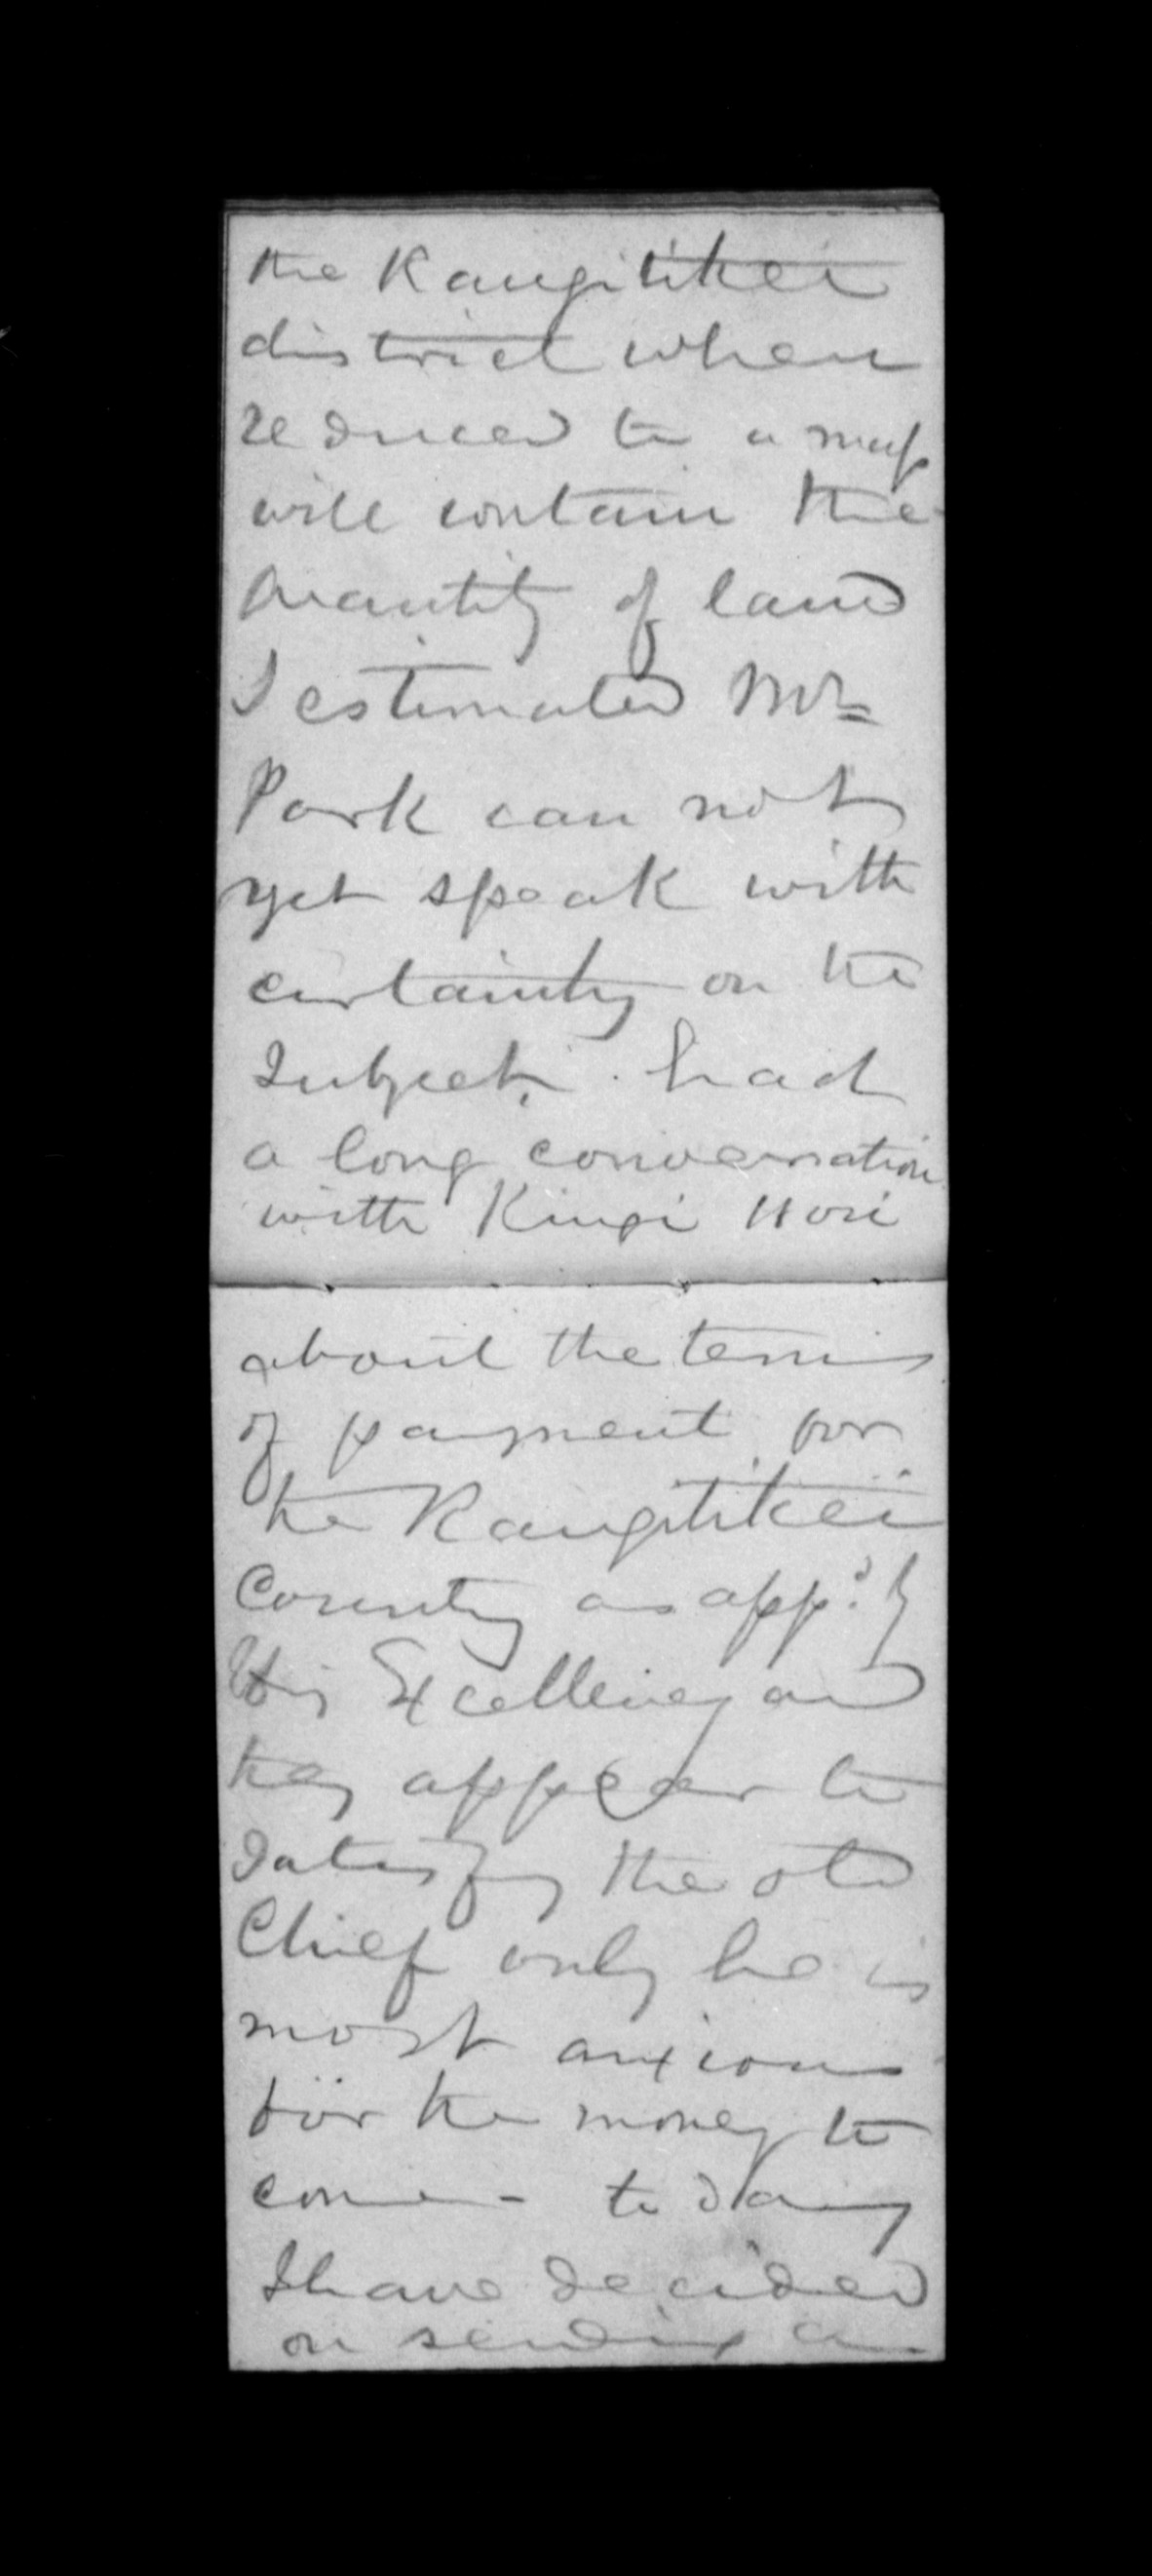 the Rangitikei
district when
reduced to a map
will contain the
quantity of land
I estimated Mr
Park can not
yet speak with
certainty on the
Subject. had
a long conversation
with Kingi Hori
about the terms
of payment for
the Rangitikei
Country as appd. by
His Excellency and
they appear to
Satisfy the old
Chief only he is
most anxious
for the money to
come - to day
I have decided
on sending a